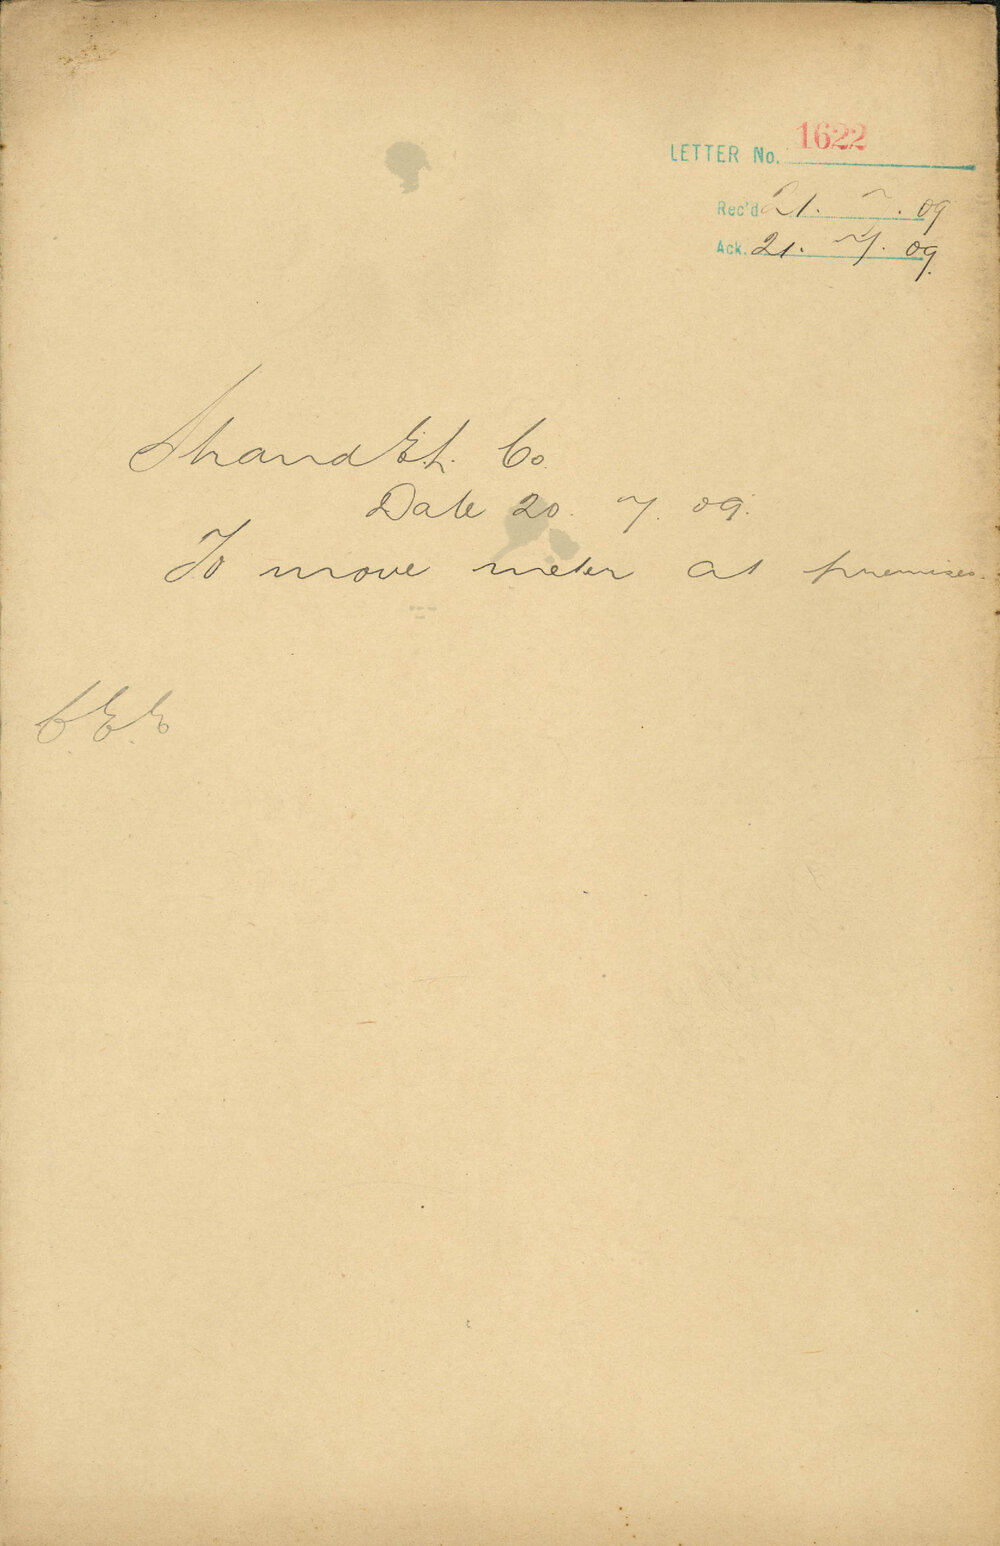 LETTER No. 1622
Rec'd 21. 7. 09
Ack. 21. 7. 09.
Co.
Date 20. 7. 09.
To move meter at premises.
C.E.E